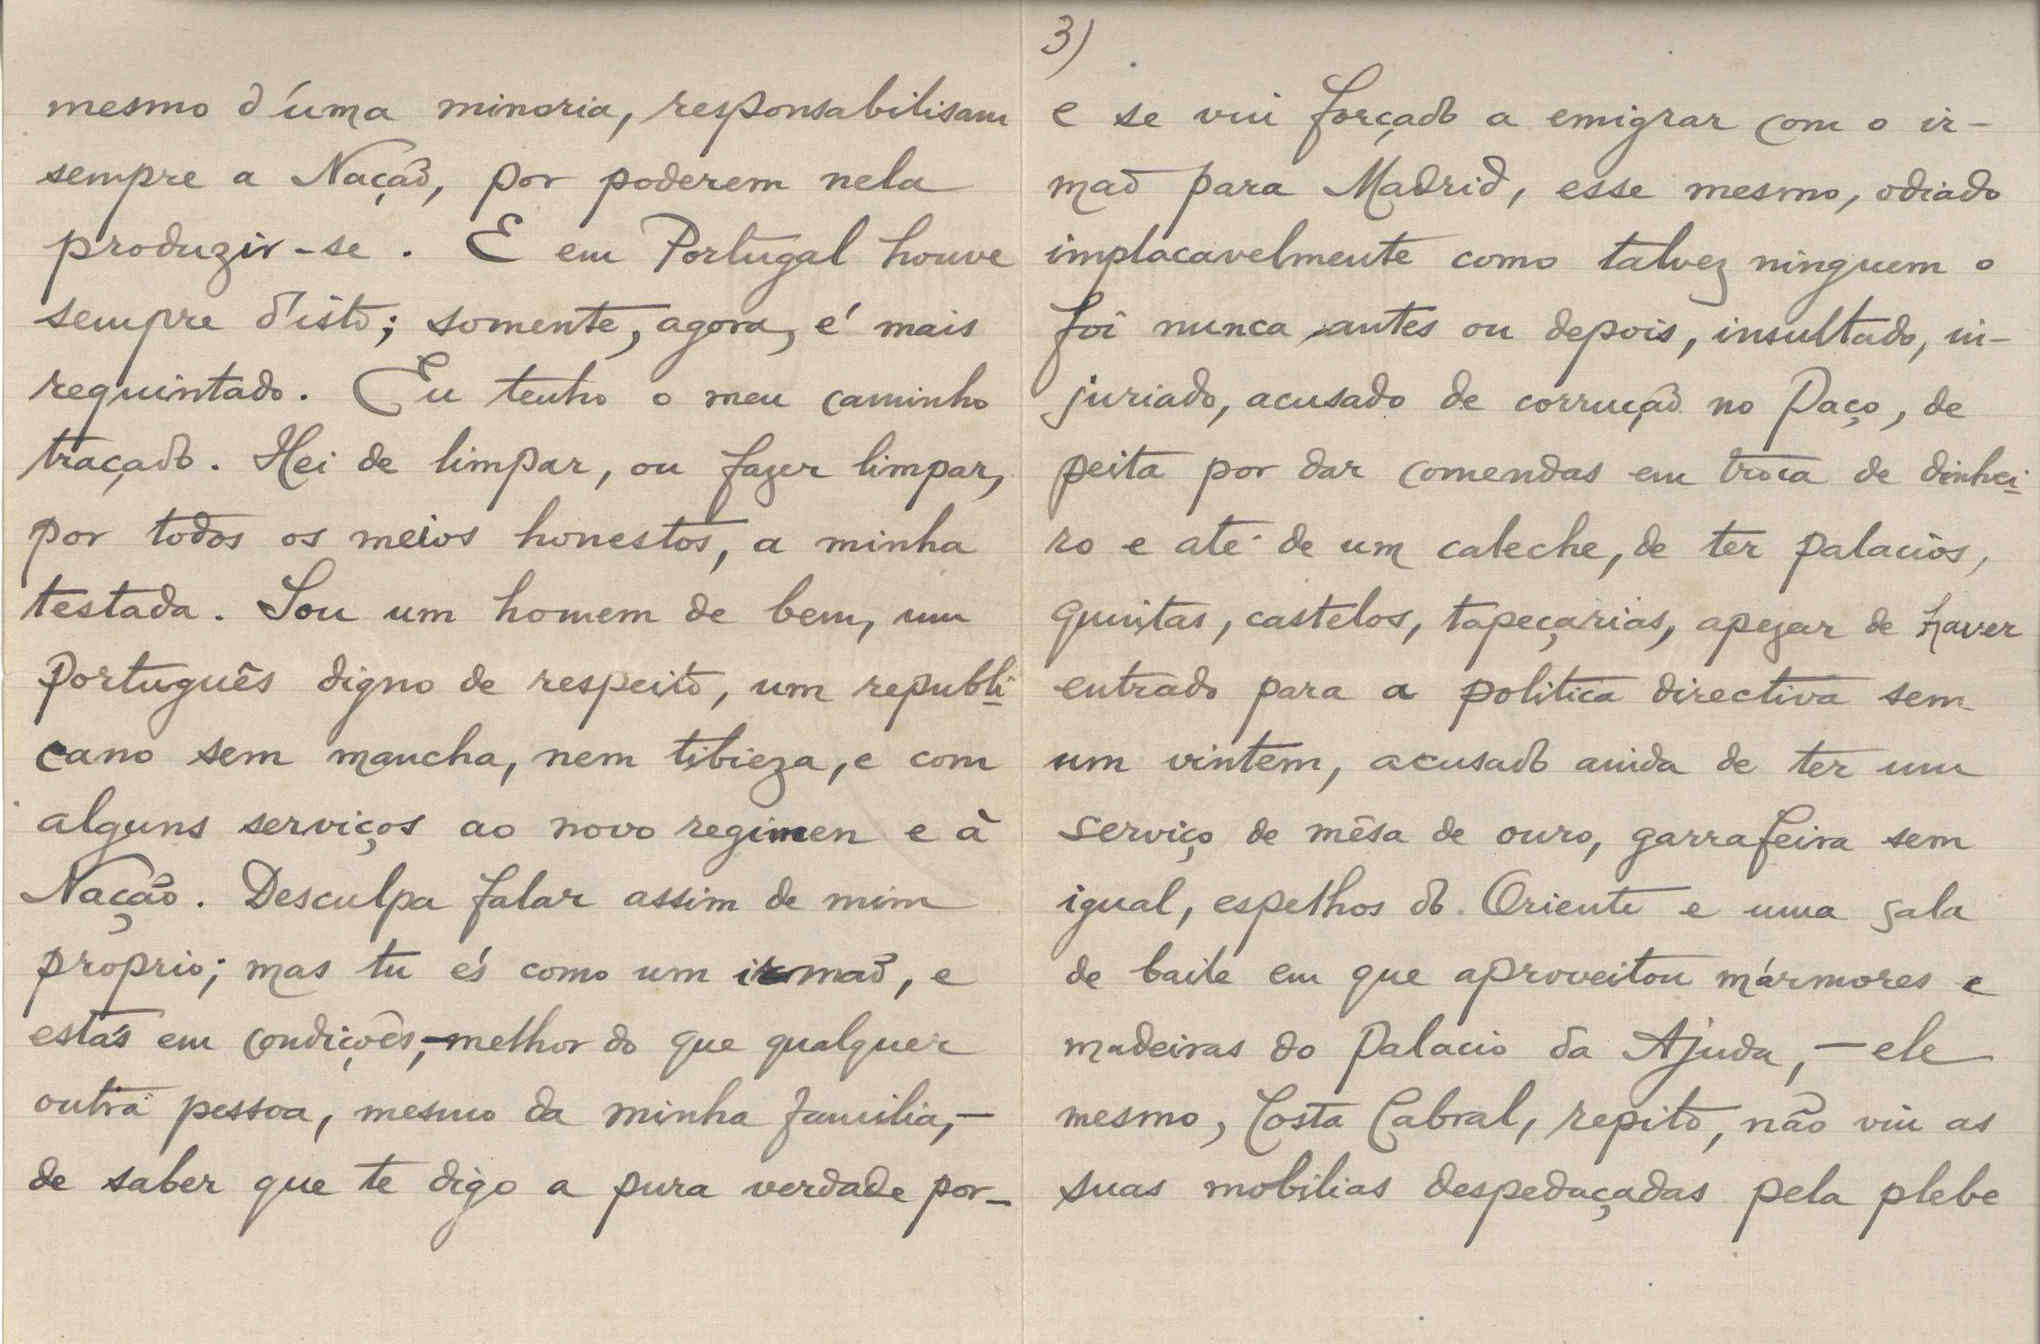 mesmo d'uma minoria, responsabilisam
sempre a Nação, por poderem nela
produzir-se. E em Portugal houve
sempre d'isto; somente, agora, é mais
requintado. Eu tenho o meu caminho
traçado. Hei de limpar, ou fazer limpar,
por todos os meios honestos, a minha
testada. Sou um homem de bem, um
português digno de respeito, um republi-
cano sem mancha, nem tibieza, e com
alguns serviços ao novo regimen e à
Nação. Desculpa falar assim de mim
proprio; mas tu és como um irmão, e
estás em condições,-melhor do que qualquer
outra pessoa, mesmo da minha familia,-
de saber que te digo a pura verdade por-
3)
e se viu forçado a emigrar com o ir-
mão para Madrid, esse mesmo, odiado
implacavelmente como talvez ninguem o
foi nunca, antes ou depois, insultado, in-
juriado, acusado de corrução no Paço, de
peita por dar comendas em troca de dinhei-
ro e até de um caleche, de ter palacios,
quintas, castelos, tapeçarias, apezar de haver
entrado para a politica directiva sem
um vintem, acusado ainda de ter um
serviço de mêsa de ouro, garrafeira sem
igual, espelhos do Oriente e uma sala
de baile em que aproveitou mármores e
madeiras do Palacio da Ajuda,-ele
mesmo, Costa Cabral, repito, não viu as
suas mobilias despedaçadas pela plebe